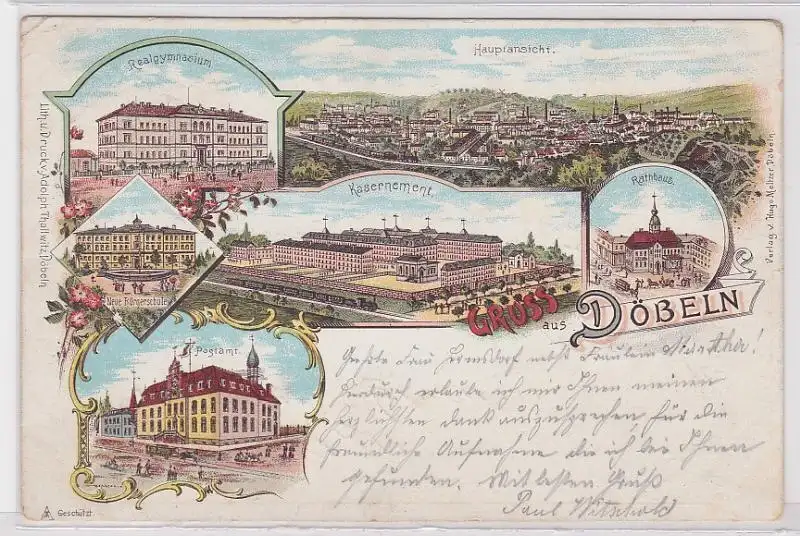 Realgymnasium.
Hauptansicht.
Lith. u. Druck v. Adolph Thallwitz, Döbeln
Kasernement.
Rathhaus.
Verlag v. Hugo Meltzer, Döbeln
Neue Bürgerschule
GRUSS
aus DÖBELN
Postamt.
Geehrte Frau Ermsdorf nebst Fräulein Marther!
Hierdurch erlaube ich mir Ihnen meinen
herzlichsten Dank auszusprechen, für die
freundliche Aufnahme die ich bei Ihnen
gefunden. Mit besten Gruß
Paul
Geschützt.